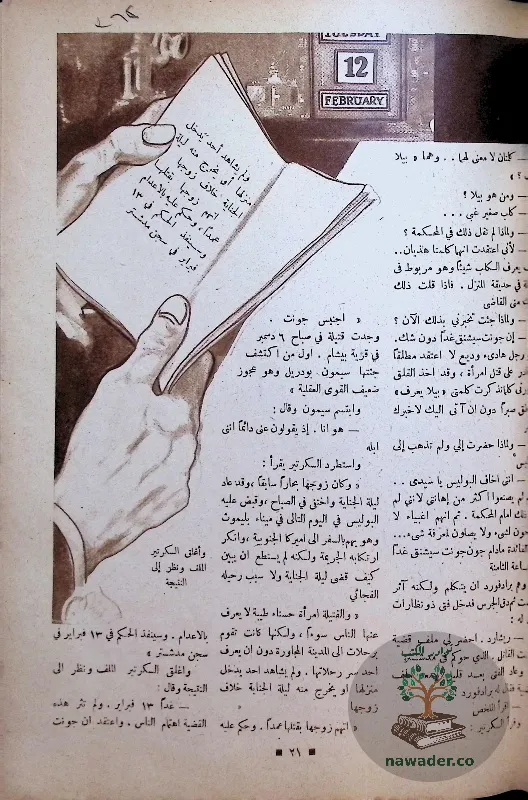 TUESDAY
12
FEBRUARY
ولم يشاهد أحد يدخل
منزلها أو يخرج منه ليلة
الجناية خلاف زوجها
اتهم زوجها بقتلها
عمداً، وحكم عليه بالاعدام
وسينفذ الحكم في ١٣
فبراير في سجن مدشستر
كلمتان لا معنى لهما . . وهما « بيلا
— ومن هو بيلا ؟
— كلب صغير غبي . . .
— ولماذا لم تقل ذلك في المحكمة ؟
— لأني اعتقدت انها كلمتا هذيان . .
يعرف الكلب شيئاً وهو مربوط في
في حديقة المنزل . فاذا قلت ذلك
مني القاضي
— ولماذا جئت تخبرني بذلك الآن ؟
— إن جونت سيشنق غداً دون شك .
رجل هادىء وديع لا اعتقد مطلقاً
على قتل امرأة ، وقد اخذ القلق
كلما تذكرت كلمتي « بيلا يعرف »
صبراً دون ان آتى اليك لاخبرك
— ولماذا حضرت إلي ولم تذهب إلى
— انني اخاف البوليس يا سيدي . .
لم يصنعوا اكثر من إهانتي لانني لم
تلك امام المحكمة . ثم انهم اغبياء لا
لشىء ولا يصلون لمعرفة شىء . . .
الفائدة مادام جون جونت سيشنق غداً
الثامنة
برادفورد ان يتكلم ولكنه آثر
دق الجرس فدخل فتى ذو نظارات
له :
— ريشارد . احضر لي ملف قضية
القاتل . الذي حوكم في مدشستر
وعاد الفتى بعد قليل ملف
فقال له برادفورد
اقرأ الملخص
وقرأ السكرتير :
« اجنيس جونت .
وجدت قتيلة في صباح ٦ دسمبر
في قرية بيشام . اول من اكتشف
جثتها سيمون . بودريل وهو عجوز
ضعيف القوى العقلية »
وابتسم سيمون وقال :
— هو انا . إذ يقولون عني دائماً انني
ابله
واستطرد السكرتير يقرأ :
« وكان زوجها بحاراً سابقاً ، وقد عاد
ليلة الجناية واختفى في الصباح ، وقبض عليه
البوليس في اليوم التالى في ميناء بليموث
وهو يهم بالسفر الى امريكا الجنوبية ، وانكر
ارتكابه الجريمة ولكنه لم يستطع ان يبين
كيف قضى ليلة الجناية ولا سبب رحيله
الفجائي
« والقتيلة امرأة حسناء طيبة لا يعرف
عنها الناس سوءاً ، ولكنها كانت تقوم
برحلات الى المدينة المجاورة دون ان يعرف
احد سر رحلاتها . ولم يشاهد احد يدخل
منزلها او يخرج منه ليلة الجناية خلاف
زوجها
« اتهم زوجها بقتلها عمداً . وحكم عليه
واغلق السكرتير
الملف ونظر إلى
النتيجة
بالاعدام . وسينفذ الحكم في ١٣ فبراير في
سجن مدشستر »
واغلق السكرتير الملف ونظر الى
النتيجة وقال :
— غداً ١٣ فبراير . ولم تثر هذه
القضية اهتمام الناس . واعتقد ان جونت
٢١
نوادر الكتب
nawader.co